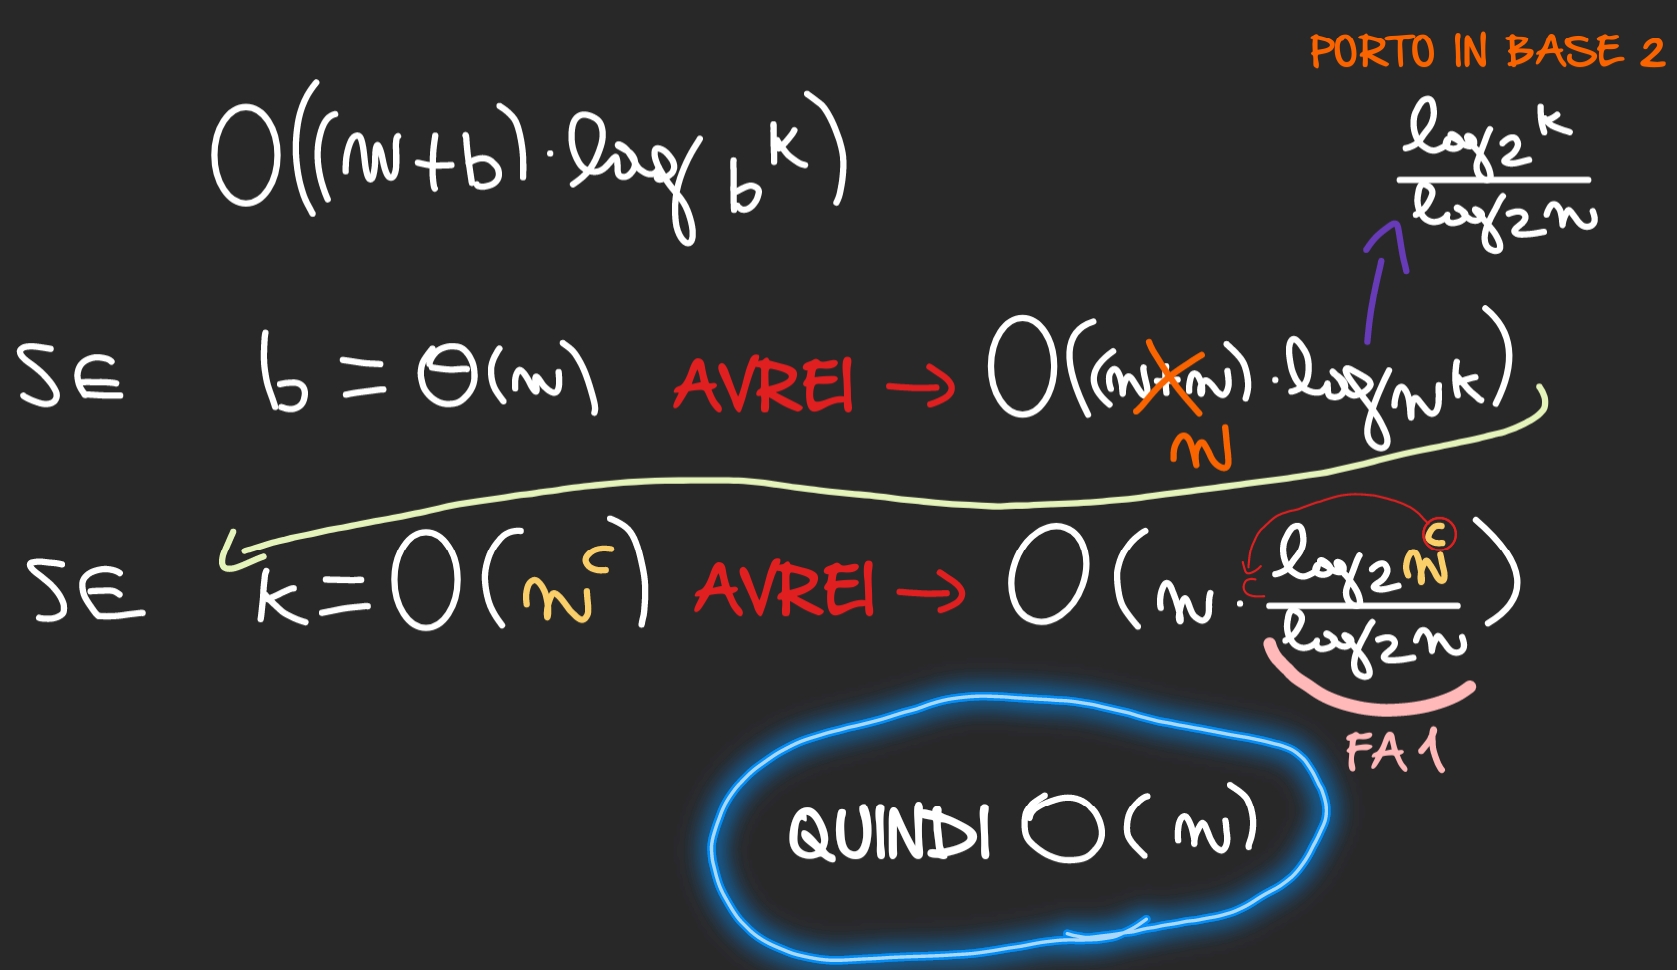 PORTO IN BASE 2
O((n+b)·log_b k)
log₂k / log₂n
SE b = Θ(n) AVREI → O((n+n)·log_n k)
n
SE k = O(n^c) AVREI → O(n · c log₂n^c / log₂n)
FA 1
QUINDI O(n)